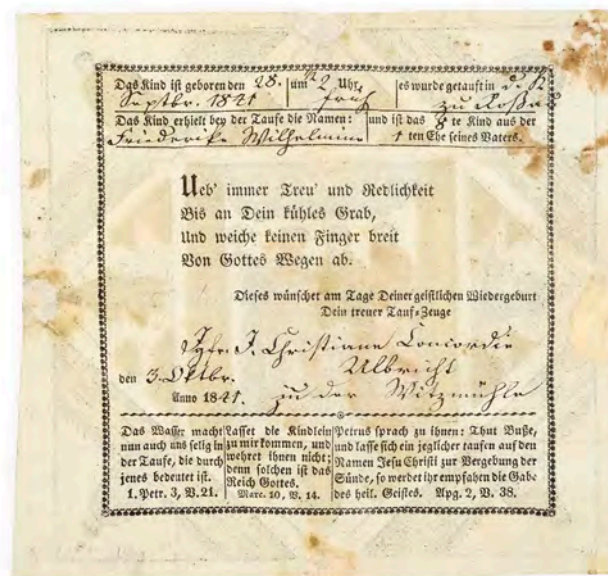 Das Kind ist geboren den 28. um 2 Uhr, es wurde getauft in d. K
Septbr. 1841 früh zu
Das Kind erhielt bey der Taufe die Namen: und ist das 8 te Kind aus der
Friederike Wilhelmine 1 ten Ehe seines Vaters.
Ueb' immer Treu' und Redlichkeit
Bis an Dein kühles Grab,
Und weiche keinen Finger breit
Von Gottes Wegen ab.
Dieses wünschet am Tage Deiner geistlichen Wiedergeburt
Dein treuer Tauf=Zeuge
Christiane Concordie
den 3. Oktbr. Ulbricht
Anno 1841. zu der Witzmühle
Das Wasser macht
nun auch uns selig in
der Taufe, die durch
jenes bedeutet ist.
1. Petr. 3, V. 21.
Lasset die Kindlein
zu mir kommen, und
wehret ihnen nicht;
denn solchen ist das
Reich Gottes.
Marc. 10, V. 14.
Petrus sprach zu ihnen: Thut Buße,
und lasse sich ein jeglicher taufen auf den
Namen Jesu Christi zur Vergebung der
Sünde, so werdet ihr empfahen die Gabe
des heil. Geistes. Apg. 2, V. 38.